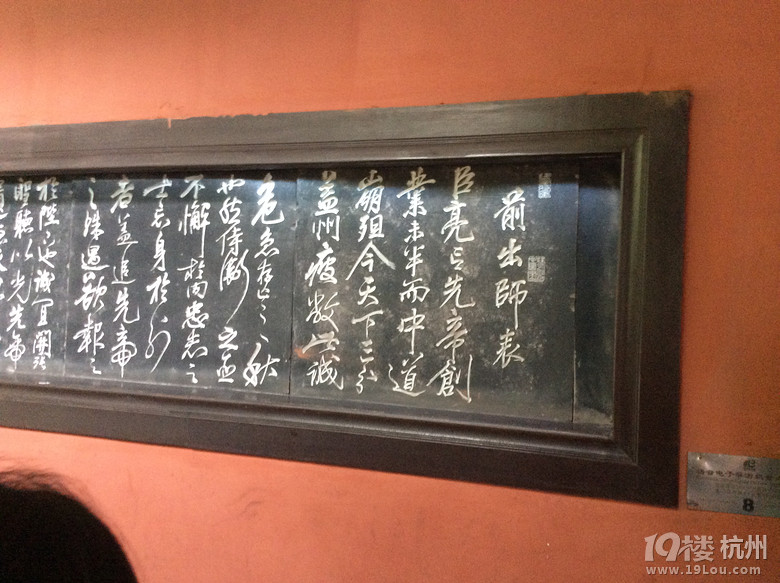 前出師表
臣亮言先帝創
業未半而中道
崩殂今天下三分
益州疲敝此誠
危急存亡之秋
也然侍衛之臣
不懈於內忠志之
士忘身於外
者蓋追先帝
之殊遇欲報之
於陛下也誠宜開張
聖聽以光先帝
8
19楼 杭州
www.19Lou.com